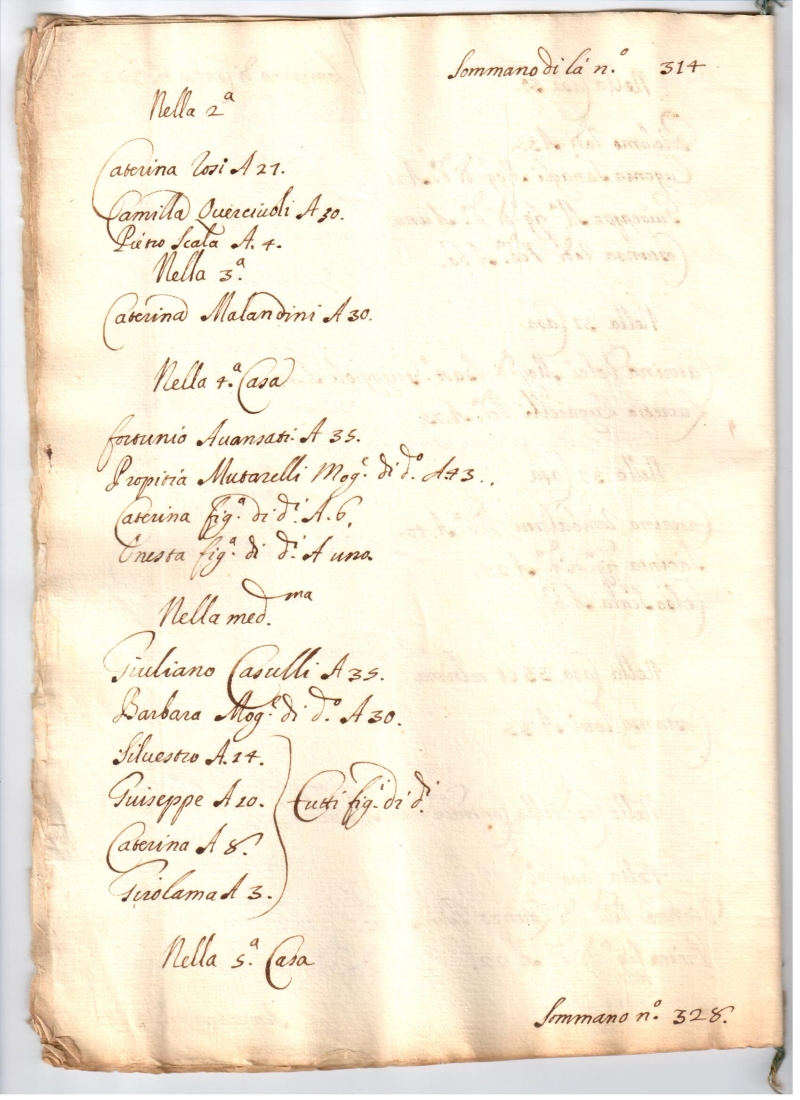 Sommano di là n.º 314
Nella 2.ª
Caterina Rosi A 27.
Camilla Querciuoli A 30.
Pietro Scala A. 4.
Nella 3.ª
Caterina Malandini A 30.
Nella 4.ª Casa
Fortunio Auansati A 35.
Propitia Mutarelli Mog.e di d.º A 43.
Caterina fig.ª di d.i A. 6.
Onesta fig.ª di d.i A uno.
Nella med.ma
Giuliano Casulli A 35.
Barbara Mog.e di d.º A 30.
Siluestro A. 14.
Guiseppe A 10. Tutti fig.i di d.i
Caterina A 8.
Girolama A 3.
Nella 5.ª Casa
Sommano n.º 328.